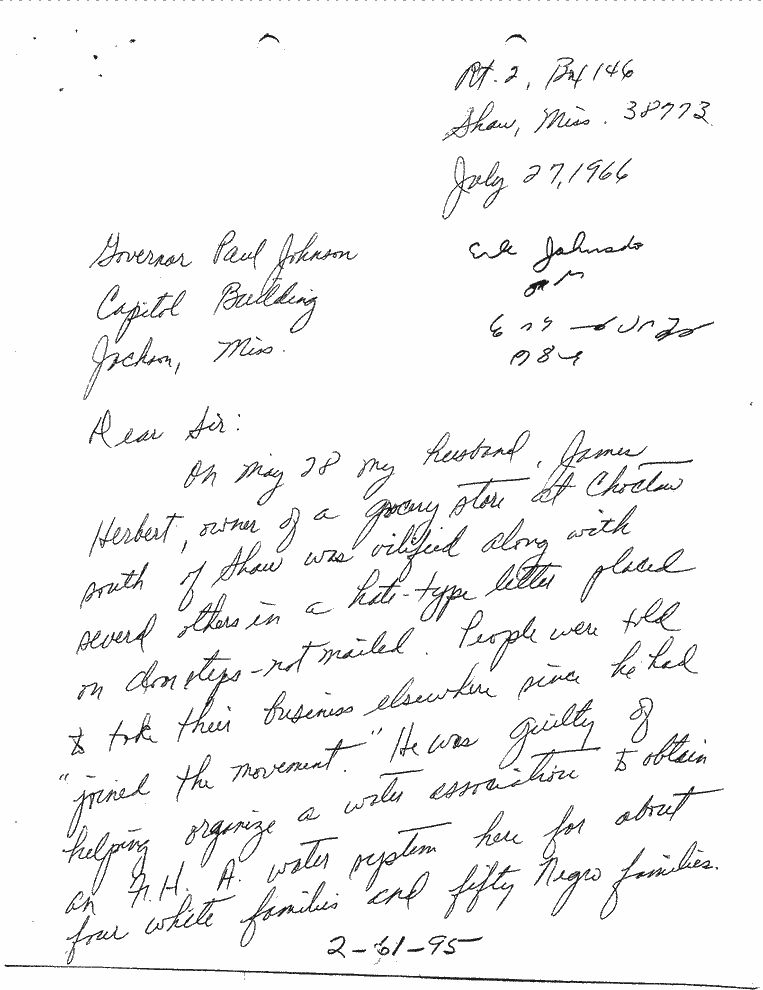 Rt. 2, Box 146
Shaw, Miss. 38773
July 27, 1966
Governor Paul Johnson
Capitol Building
Jackson, Miss.
Erle Johnson
Dear Sir:
On May 28 my husband, James
Herbert, owner of a grocery store at Choctaw
south of Shaw was vilified along with
several others in a hate-type letter placed
on doorsteps - not mailed. People were told
to take their business elsewhere since he had
"joined the movement." He was guilty of
helping organize a water association to obtain
an F.H.A. water system here for about
four white families and fifty Negro families.
2-61-95